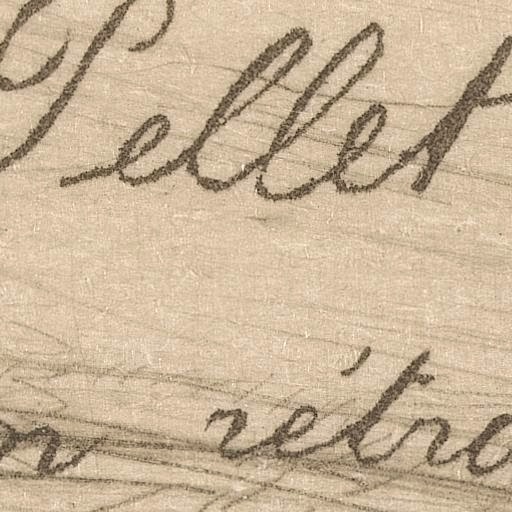 Pellet
n rétro